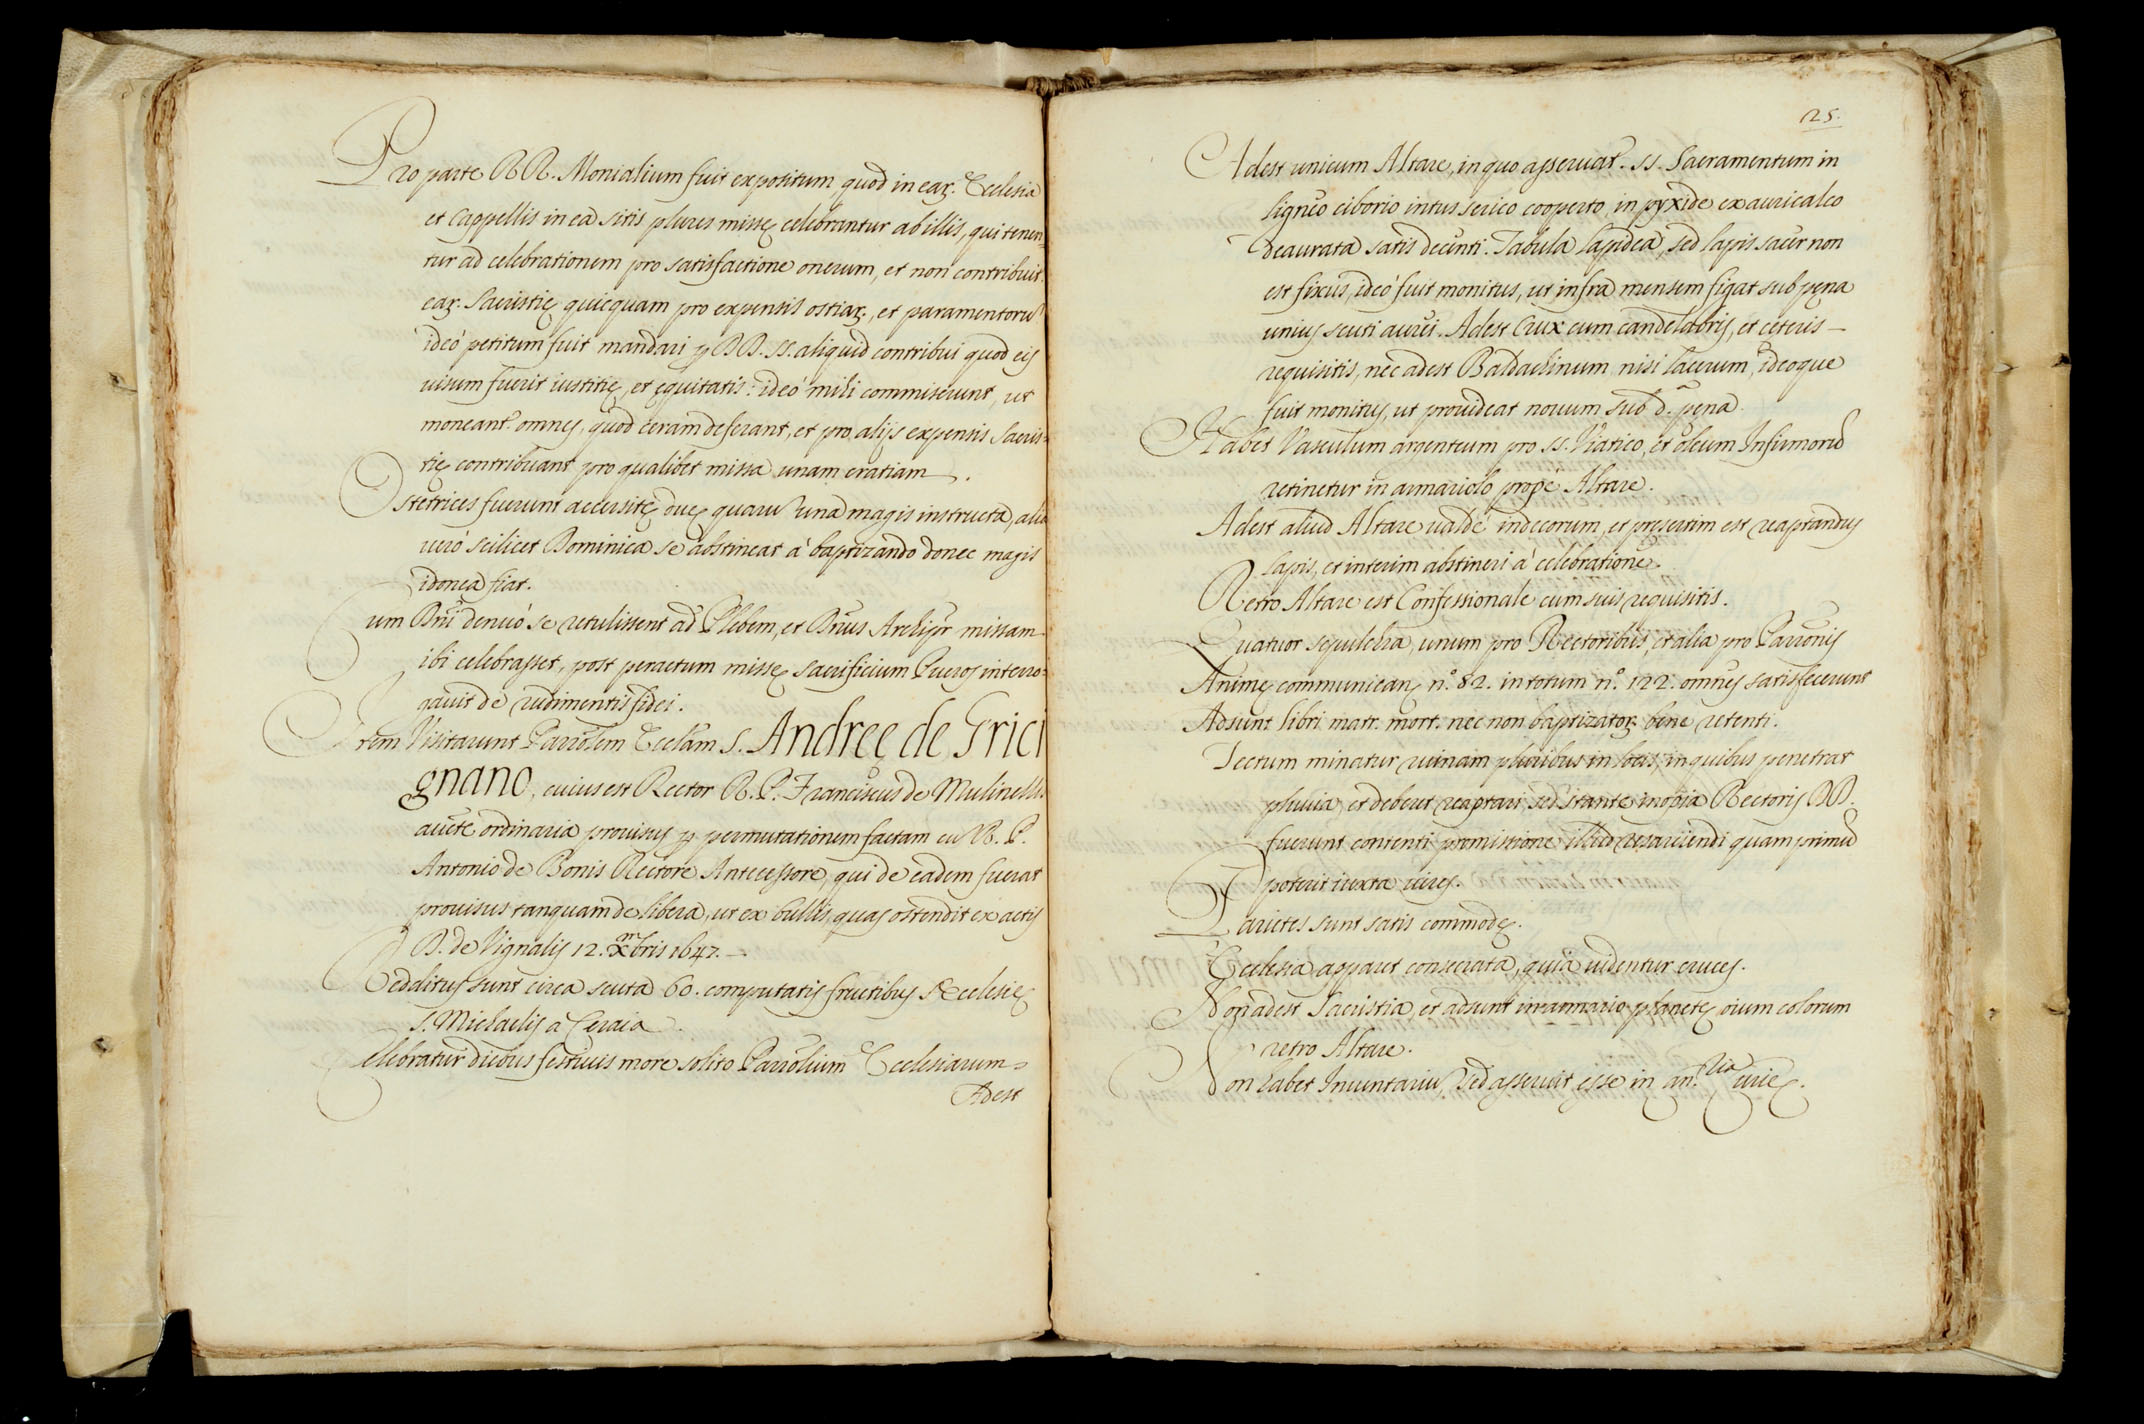 Pro parte RR. Monialium fuit expositum quod in ear. Ecclesia
et Cappellis in ea sitis plures missę celebrantur ab illis, qui tenen=
tur ad celebrationem pro satisfactione onerum, et non contribuit
ear. Sacristię quicquam pro expensis ostiar., et paramentorũ
ideò petitum fuit mandari p DD. SS. aliquid contribui quod eis
uisum fuerit iustitię, et ęquitatis: ideò mihi commiserunt, ut
moneant.r omnes, quod ceram deferant, et pro alijs expensis Sacris=
tię contribuant pro qualibet missa unam cratiam.
Ostetrices fuerunt accersitę duę quarũ una magis instructa, alia
uerò scilicet Dominica se abstineat à baptizando donec magis
idonea fiat.
Cum Dñi denuò se retulissent ad Plebem, et Dñus Archipr missam
ibi celebrasset, post peractum missę sacrificium Pueros interro=
gauit de rudimentis fidei.
Item Visitarunt Parrõlem Ecclam S. Andreę de Grici
gnano, cuius est Rector R. P. Franciscus de Mulinellis
aucte ordinaria prouisus p permutationem factam cũ R. P.
Antonio de Bonis Rectore Antecessore, qui de eadem fuerat
prouisus tanquam de libera, ut ex bullis, quas ostendit ex actis
D. de Vignalis 12. Xmbris 1647.
Redditus sunt circa scuta 60. computatis fructibus Ecclesię
S. Michaelis a Ceraia.
Celebratur diebus festiuis more solito Parrõlium Ecclesiarum
Adest
25.
Adest unicum Altare, in quo asseruat.r SS. Sacramentum in
ligneo ciborio intus serico cooperto, in pyxide ex auricalco
deaurata satis decenti. Tabula lapidea, sed lapis sacer non
est fixus, ideò fuit monitus, ut infra mensem figat sub pęna
unius scuti aurei. Adest Crux cum candelabris, et ceteris
requisitis, nec adest Baldachinum nisi lacerum, ideoque
fuit monitus, ut prouideat nouum sub d.a pęna.
Habet Vasculum argenteum pro SS. Viatico, et oleum Infirmorũ
retinetur in armariolo propè Altare.
Adest aliud Altare ualdè indecorum, et presertim est reaptandus
lapis, et interim abstineri à celebratione.
Retro Altare est Confessionale cum suis requisitis.
Quatuor sepulchra, unum pro Rectoribus, et alia pro Parronis
Animę communicanę n.o 82. in totum n.o 122. omnes satisfecerunt
Adsunt libri matr. mort. nec non baptizator. bene retenti.
Tectum minatur ruinam pluribus in locis, in quibus penetrat
pluuia, et deberet reaptari, sed stante inopia Rectoris DD.
fuerunt contenti promissione illud resarciendi quam primũ
poterit iuxta uires.
Parietes sunt satis commodę.
Ecclesia apparet consecrata, quia uidentur cruces.
Non adest Sacristia, et adsunt in armario planetę oium colorum
retro Altare.
Non habet Inuentariũ, sed asseruit esse in an.ria Curię.